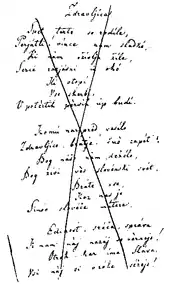 Zdravljica
Spet trte so rodile,
Prijatli, vince nam sladkó,
Ki nam oživlja žile,
Sercé razjasni in okó
Ki utopi
Vse skerbi,
V potrtih persih up budi.
Komú narpred veselo
Zdravljico, bratje! čmo zapét'!
Bog naj nam deželo,
Bog živi vès slovénski svét.
Brate vse,
Kar nas je
Sinov
Edinost, sreča, sprava
K nam naj nazaj se vernejo!
Otrók kar ima Slava,
Vsi naj si v roke sežejo!